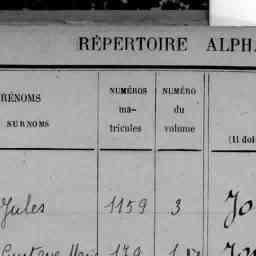 RÉPERTOIRE ALPHA
RÉNOMS
SURNOMS
NUMÉROS
ma-
tricules
NUMÉRO
du
volume
(Il doi
Jules 1159 3 Jo
Gustave 179 1